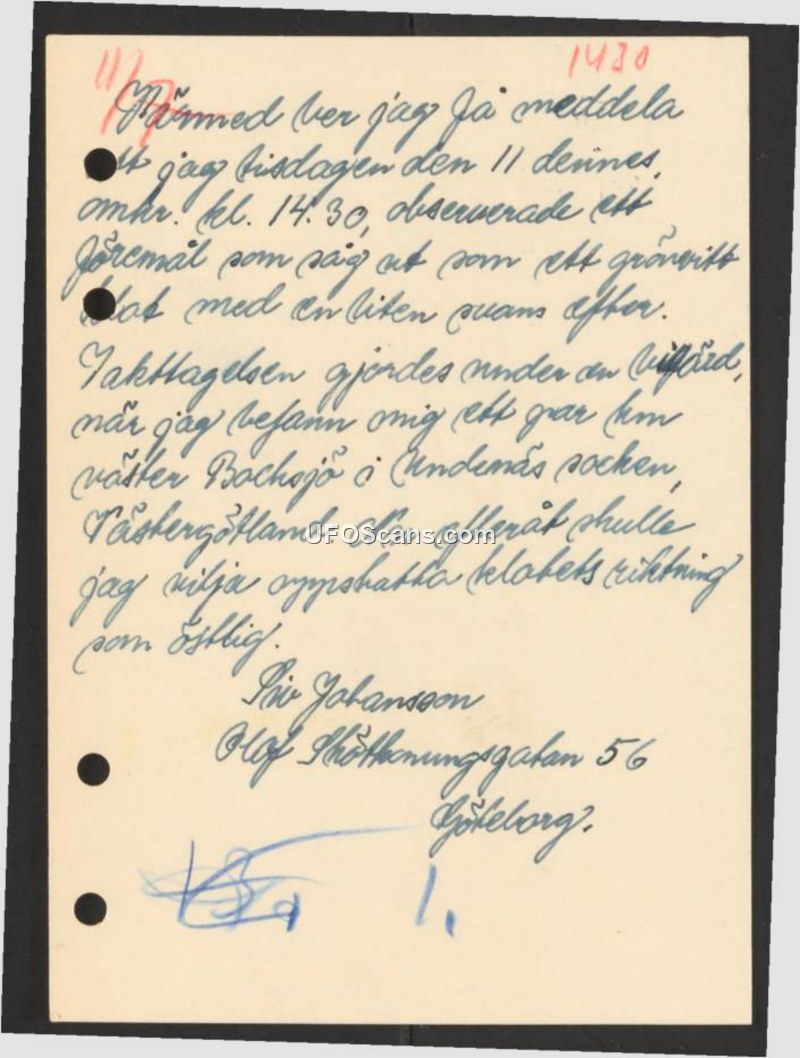 11/7 1430
Härmed ber jag få meddela
att jag tisdagen den 11 dennes,
omkr. kl. 14.30, observerade ett
föremål som såg ut som ett grönvitt
klot med en liten svans efter.
Iakttagelsen gjordes under en bilfärd,
när jag befann mig ett par km
väster Bocksjö i Undenäs socken,
Västergötland. efteråt skulle
jag vilja uppskatta klotets riktning
som östlig.
Siv Johansson
Olof Skötkonungsgatan 56
Göteborg.
1.
UFOScans.com